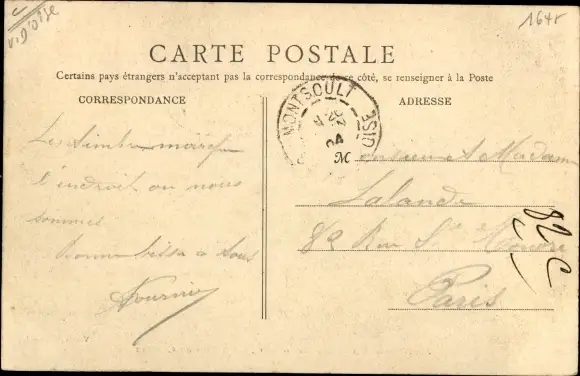 V. D'OISE
1645
CARTE POSTALE
Certains pays étrangers n'acceptant pas la correspondance de ce côté, se renseigner à la Poste
CORRESPONDANCE
ADRESSE
MONTSOULT
OISE
04
Le timbre marque
l'endroit ou nous
sommes
Bonne bissa a tous
Fournier
Monsieur et Madame
Lalande
82 Rue St Honoré
Paris